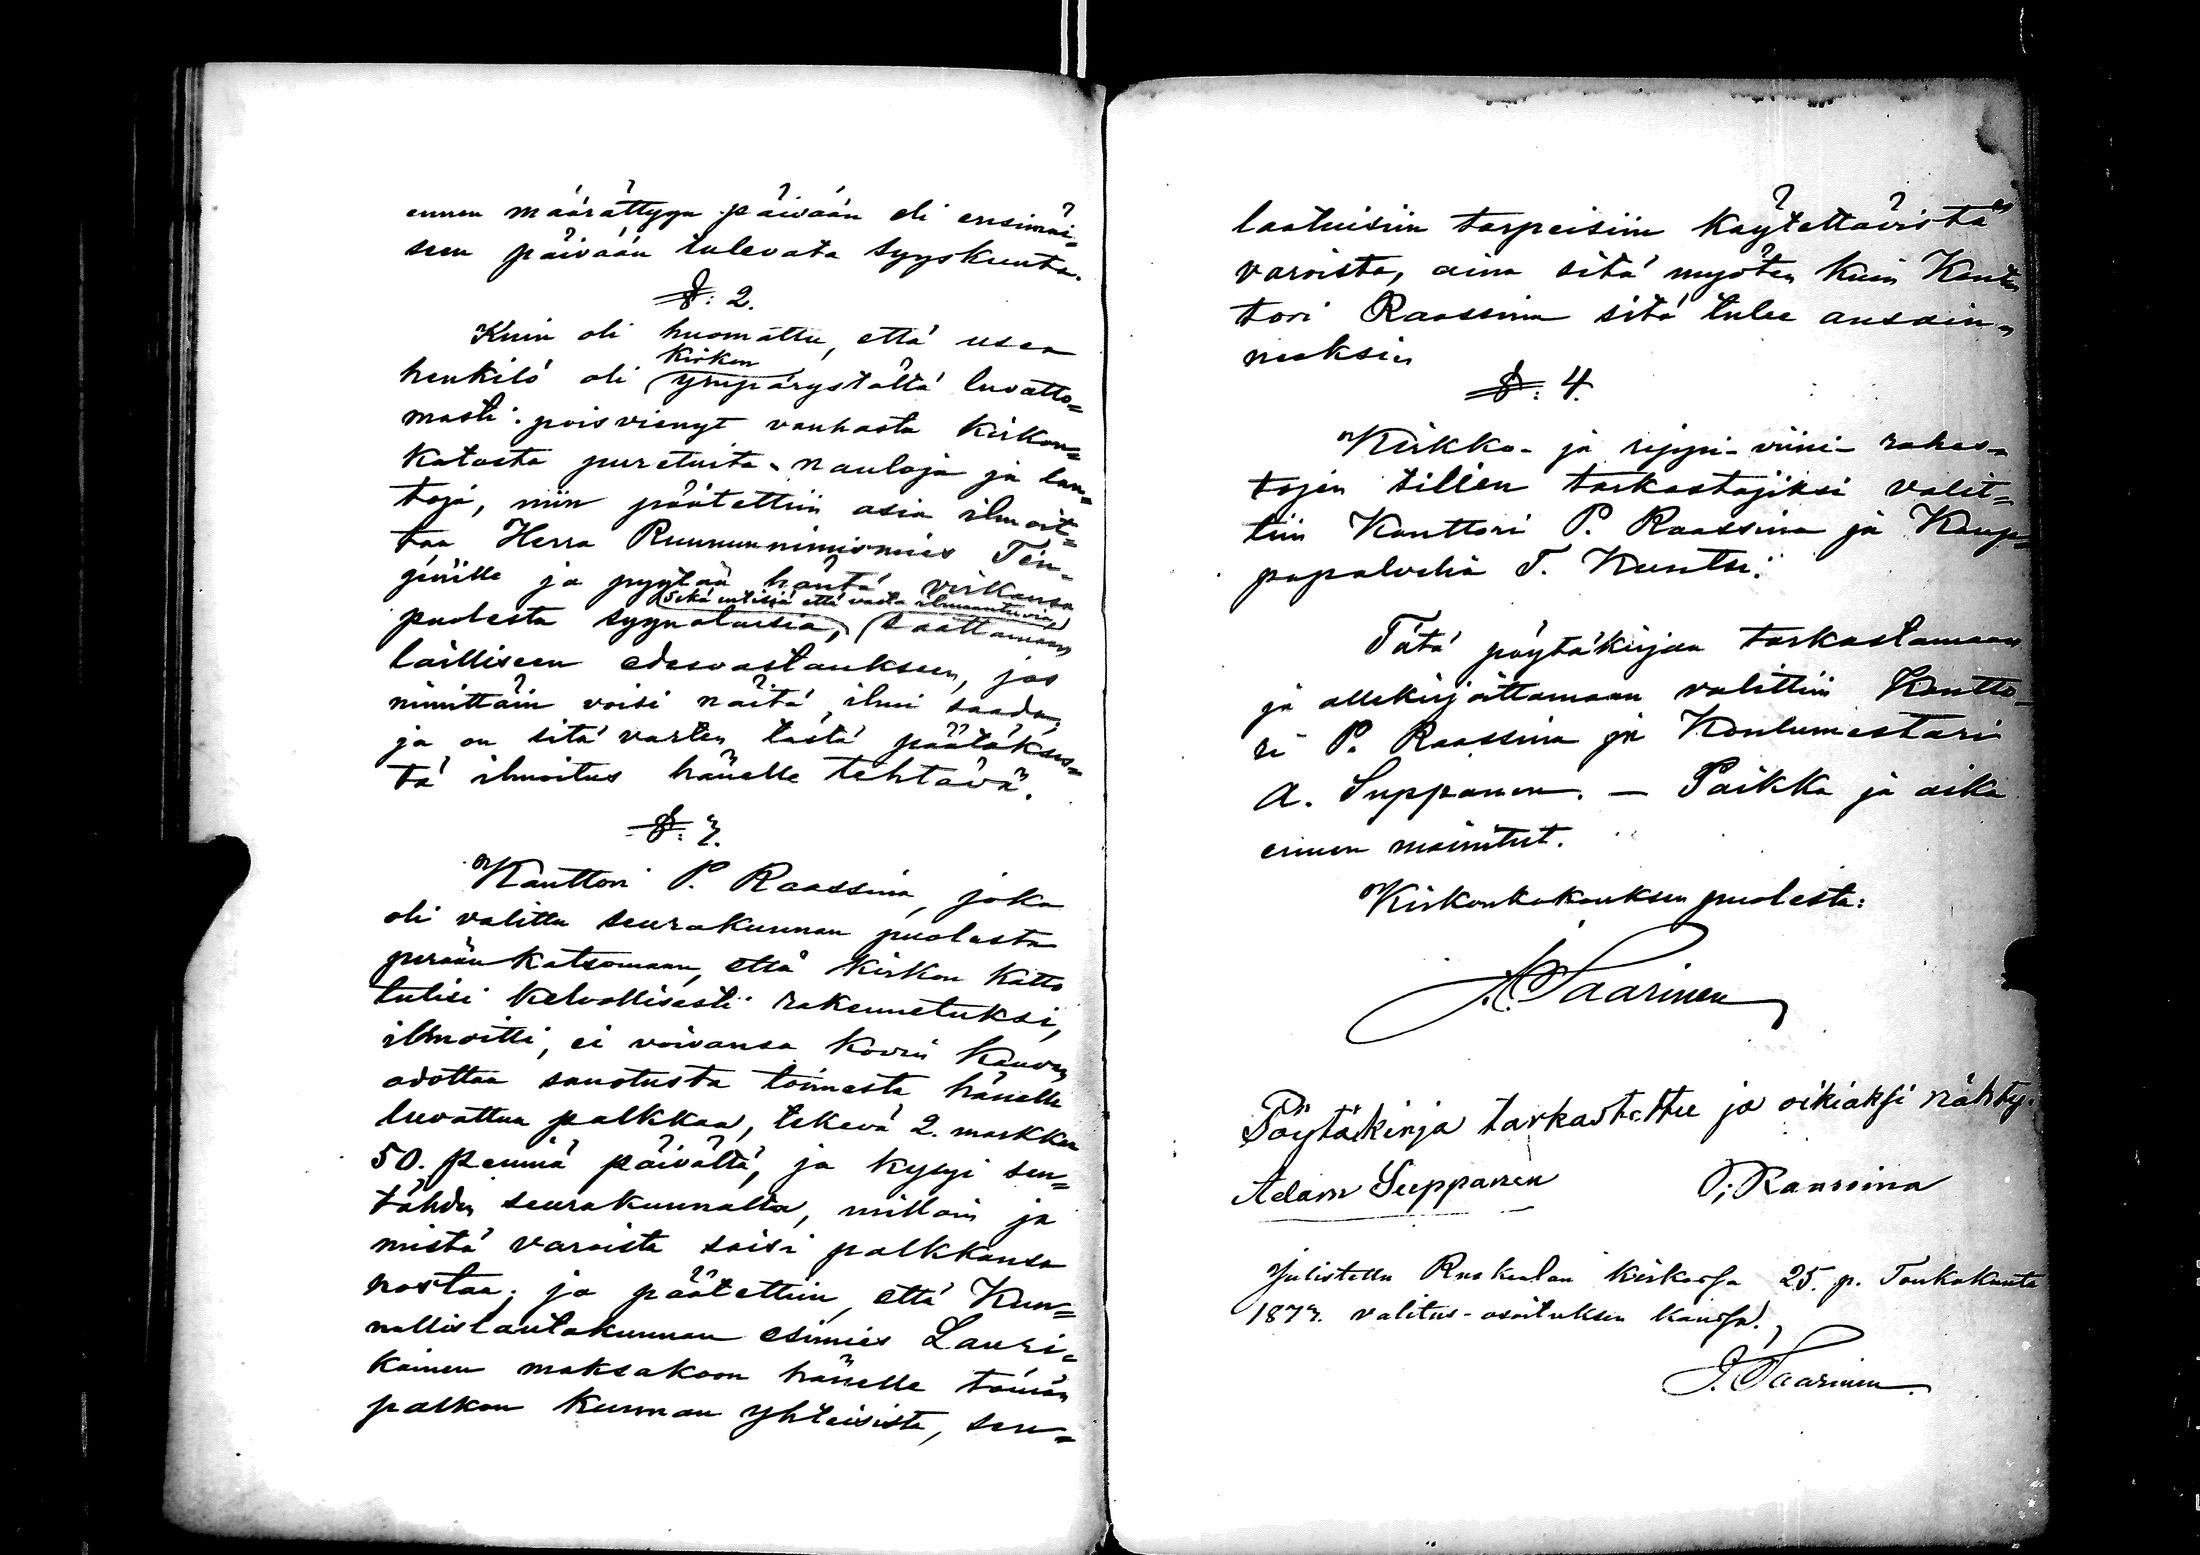 ennen määrättygn päivään eli ensimäi=
seen päivään tulevata Syyskunta.
§: 2.
Kuin oli huomattu, että usea
Kirkon
henkilö oli ympärystältä luvatto=
masti poisvienyt vanhasta Kirkon=
katosta puretuita nauloja ja lau=
toja, niin päätettiin asia ilmoit=
taa Herra Ruununnimismies Ten=
génille ja pyytää häntä virkansa
sekä entisiä että vasta ilmaantuvia
puolesta syynalaisia, saattamaan
lailliseen edesvastaukseen, jos
nimittäin voisi näitä ilmi saada,
ja on sitä varten tästä päätökses=
tä ilmoitus hänelle tehtävä.
§: 3.
Kanttori P. Raassina, joka
oli valittu seurakunnan puolesta
perään katsomaan, että Kirkon katto
tulisi kelvollisesti rakennetuksi,
ilmoitti, ei voivansa kovin kauvan
odottaa sanotusta toimesta hänelle
luvattua palkkaa, tekevä 2. markkaa
50. penniä päivältä, ja kysyi sen=
tähden seurakunnalta, milloin ja
mistä varoista saisi palkkansa
nostaa; ja päätettiin, että Kun=
nallislautakunnan esimies Lauri=
kainen maksakoon hänelle tämän
palkan kunnan yhteisistä, sen=
laatuisiin tarpeisiin käytettävistä
varoista, aina sitä myöten kuin Kant=
tori Raassina sitä tulee ansain=
neeksi.
§: 4.
Kirkko- ja rippi-viini-rahas=
tojen tilien tarkastajiksi valit=
tiin Kanttori P. Raassina ja Kaup=
papalvelia T. Kuntsi.
Tätä pöytäkirjaa tarkastamaan
ja allekirjoittamaan valittiin Kantto=
ri P. Raassina ja Koulumestari
A. Suppanen. — Paikka ja aika
ennen mainitut.
Kirkonkokouksen puolesta:
J. Saarinen
Pöytäkirja tarkastettu ja oikiaksi nähty.
Adam Seppanen P; Raassina
Julistettu Ruskealan kirkossa 25. p. Toukokuuta
1873. valitus-osoituksen kanssa.
J. Saarinen.